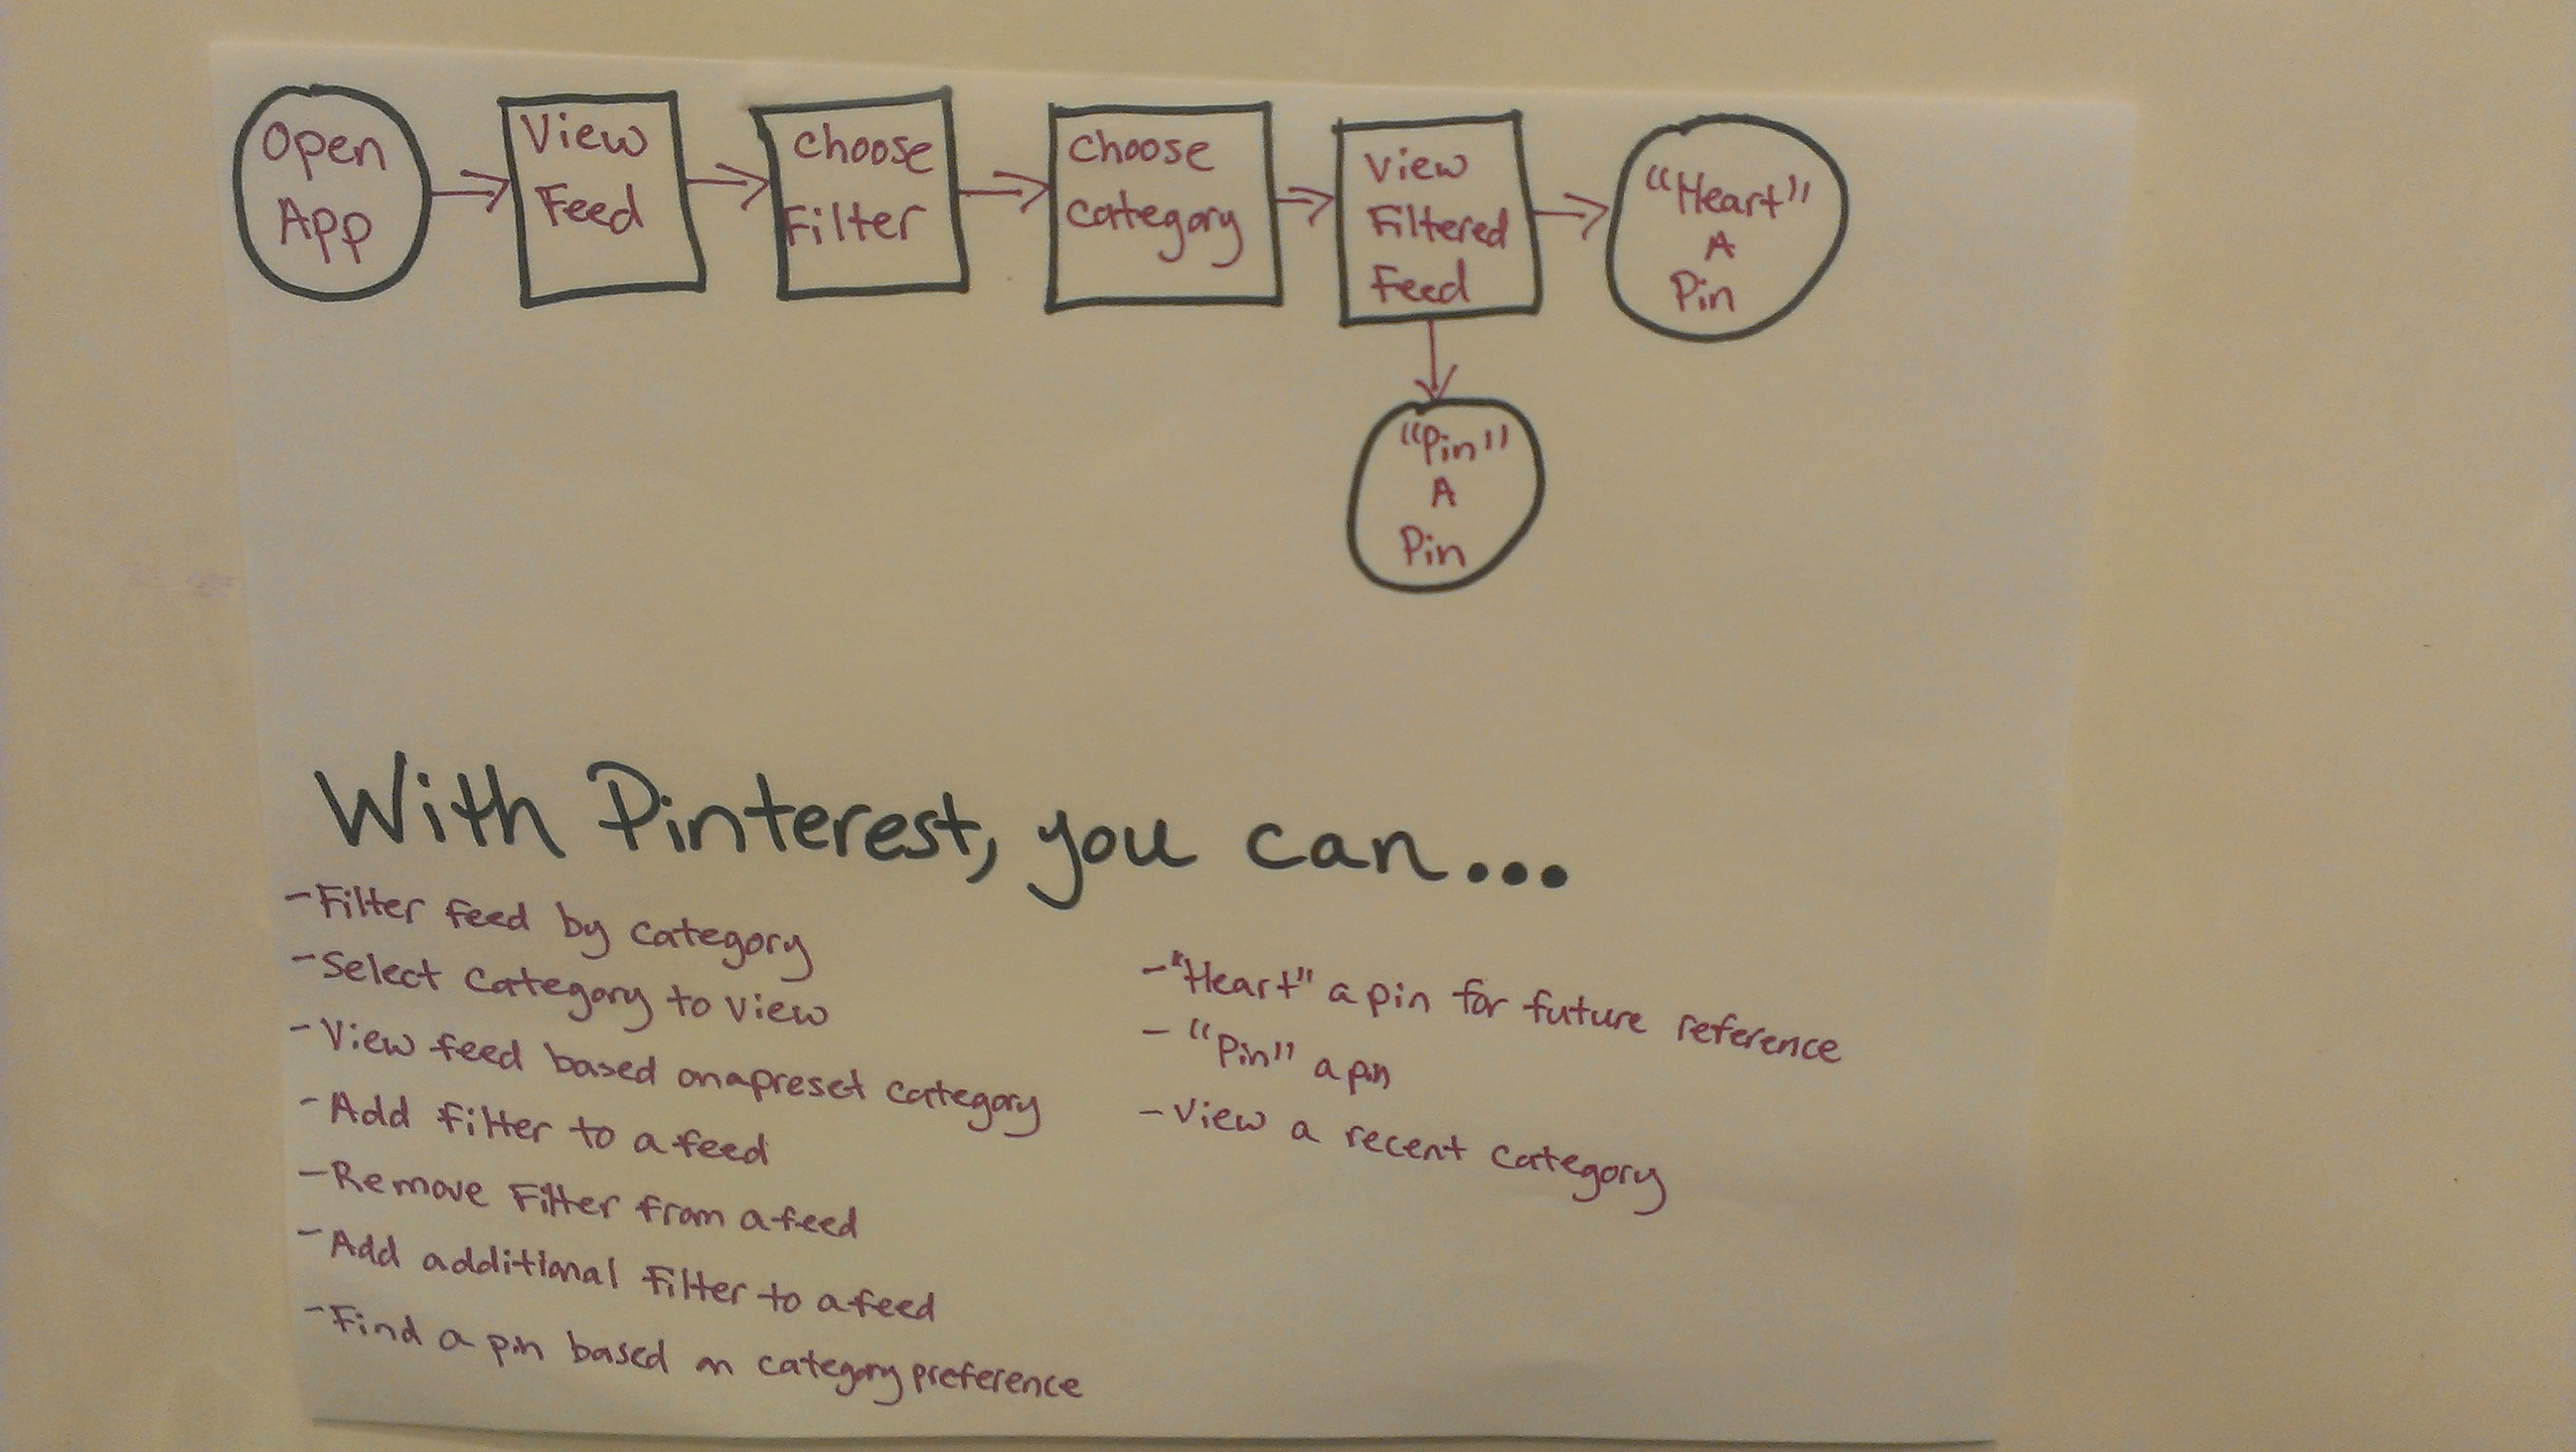 Open
App
View
Feed
Choose
Filter
Choose
Category
View
Filtered
Feed
“Heart”
A
Pin
“Pin”
A
Pin
With Pinterest, you can...
-Filter feed by category
-Select category to view
-View feed based on a preset category
-Add filter to a feed
-Remove Filter from a feed
-Add additional filter to a feed
-Find a pin based on category preference
-"Heart" a pin for future reference
-"Pin" a pin
-View a recent category